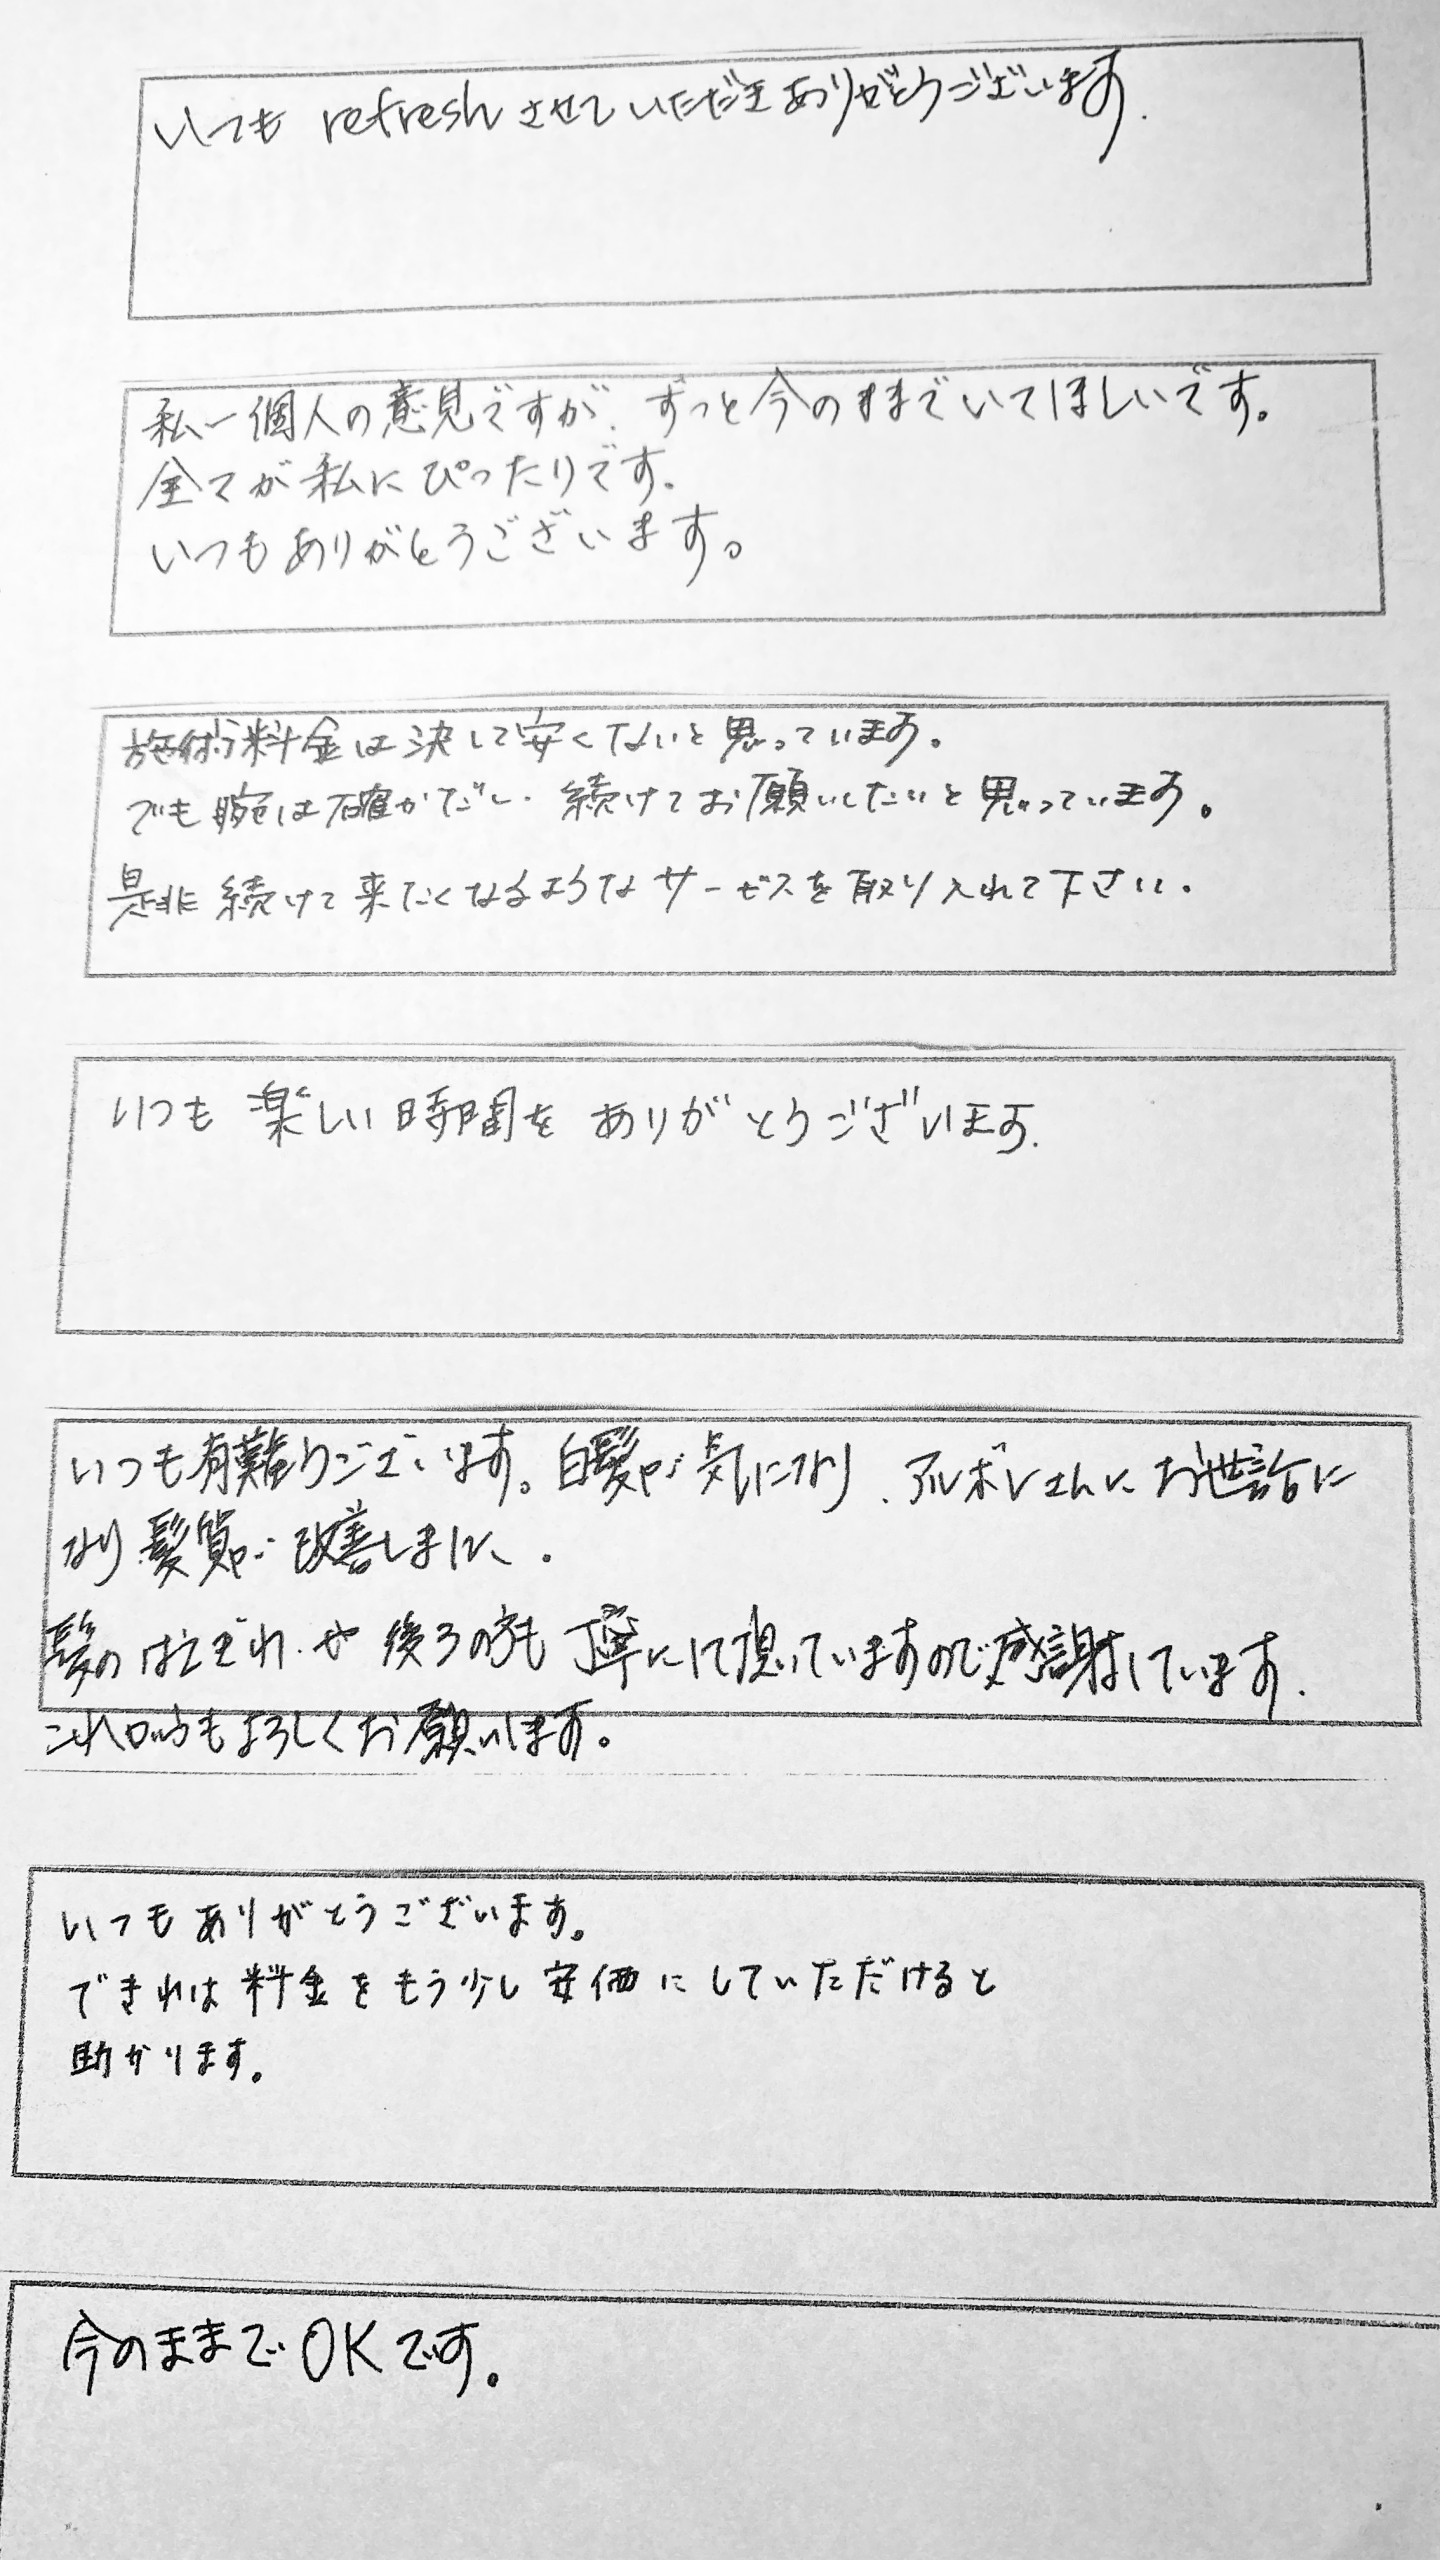 いつも refreshさせていただきありがとうございます.
私一個人の意見ですが、ずっと今のままでいてほしいです。
全てが私にぴったりです.
いつもありがとうございます。
施術料金は決して安くないと思っています。
でも腕は確かだし、続けてお願いしたいと思っています。
是非続けて来たくなるようなサービスを取り入れて下さい.
いつも楽しい時間をありがとうございます.
いつも有難うございます。白髪が気になり、アルボレさんにお世話に
なり髪質が改善しました.
髪のはえぎわや後ろの方も丁寧にして頂いていますので感謝しています.
これからもよろしくお願いします。
いつもありがとうございます。
できれば料金をもう少し安価にしていただけると
助かります。
今のままでOKです。